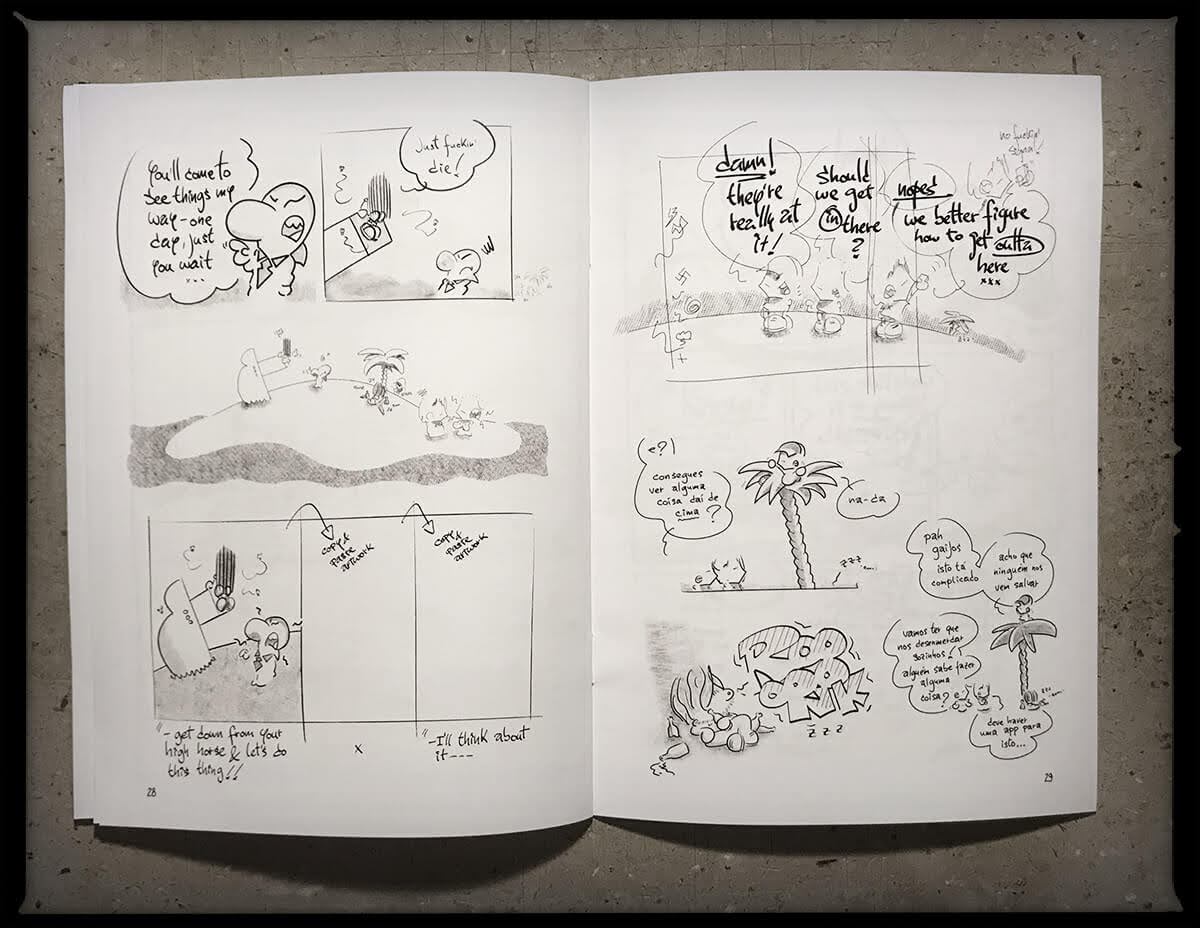 You'll come to
see things my
way - one
day, just
you wait
...
Just fuckin'
die!
copy &
paste
artwork
copy &
paste
artwork
"- get down from your
high horse & let's do
this thing!!
x
"-I'll think about
it---
28
no fuckin'
signal!
damn!
they're
really at
it!
Should
we get
in there
?
nopes!
we better figure
how to get outta
here
xxx
zzz
e?!
consegues
ver alguma
coisa daí de
cima ?
na-da
zzz...
pah
gaijos
isto tá
complicado
acho que
ninguém nos
vem salvar
vamos ter que
nos desenmerdar
sozinhos
alguém sabe fazer
alguma
coisa?
deve haver
uma app para
isto...
zzz
29